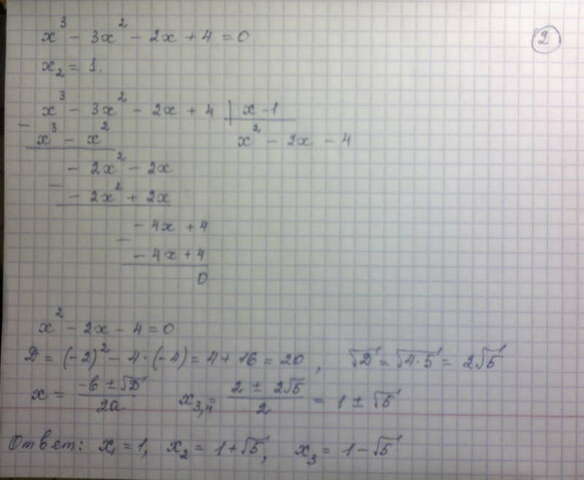 x³ - 3x² - 2x + 4 = 0
2
x₂ = 1.
x³ - 3x² - 2x + 4 | x - 1
- x³ - x²
x² - 2x - 4
- 2x² - 2x
- - 2x² + 2x
- 4x + 4
- - 4x + 4
0
x² - 2x - 4 = 0
D = (-2)² - 4·(-4) = 4 + 16 = 20, √D = √4·5 = 2√5
x = (-b ± √D)/2a x₃,₄ = (2 ± 2√5)/2 = 1 ± √5
Ответ: x₁ = 1, x₂ = 1+√5, x₃ = 1-√5